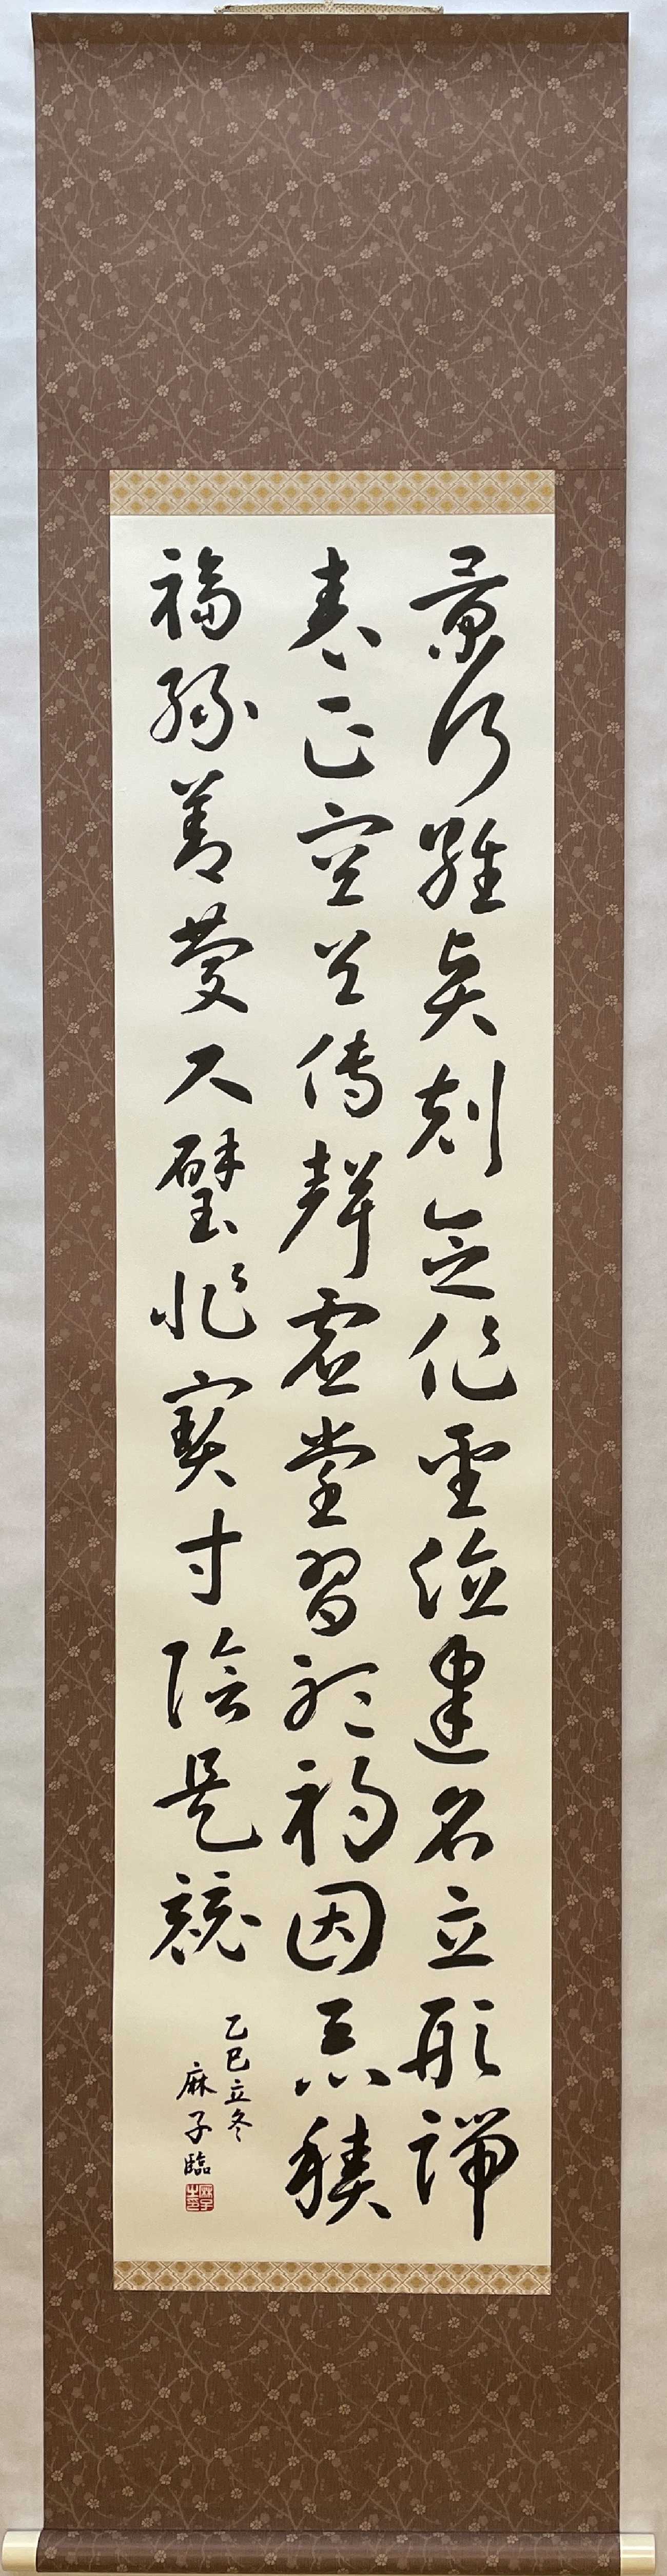 景行維賢剋念作聖德建名立形端
表正空谷傳聲虚堂習聽禍因悪積
福縁善慶尺璧非寶寸陰是競
乙巳立冬
麻子臨